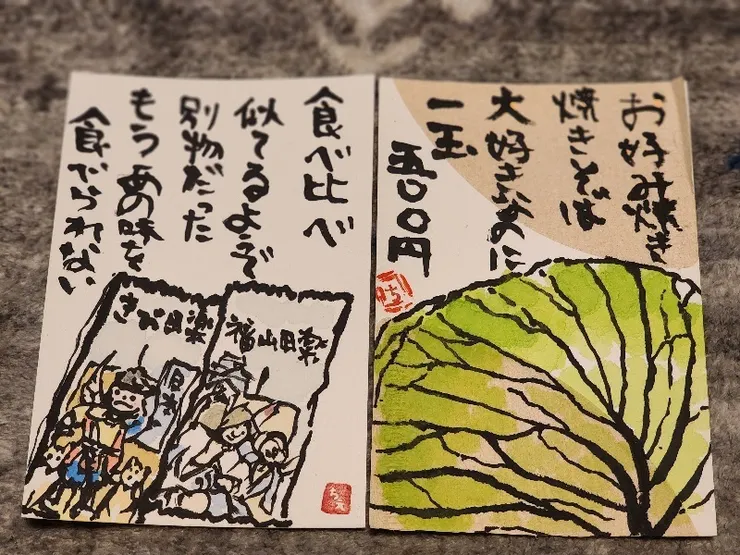 お好み焼き
焼きそば
大好きなのに
一玉
五〇〇円
食べ比べ
似てるようで
別物だった
もうあの味を
食べられない
きび田楽
福山田楽